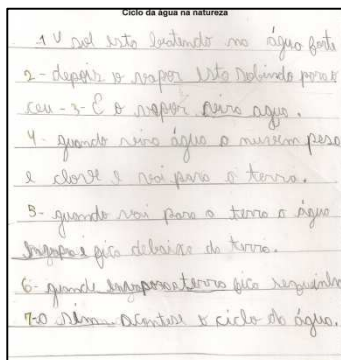 Ciclo da água na natureza
1 O sol esta batendo na água forte
2 - depois o vapor esta subindo para o
ceu - 3 - E o vapor vira agua.
4 - quando vira água a nuvem pesa
e chove e vai para a terra.
5 - quando vai para a terra a água
e fica debaixo da terra.
6 - quando terra fica
7 - o acontese o ciclo da água.